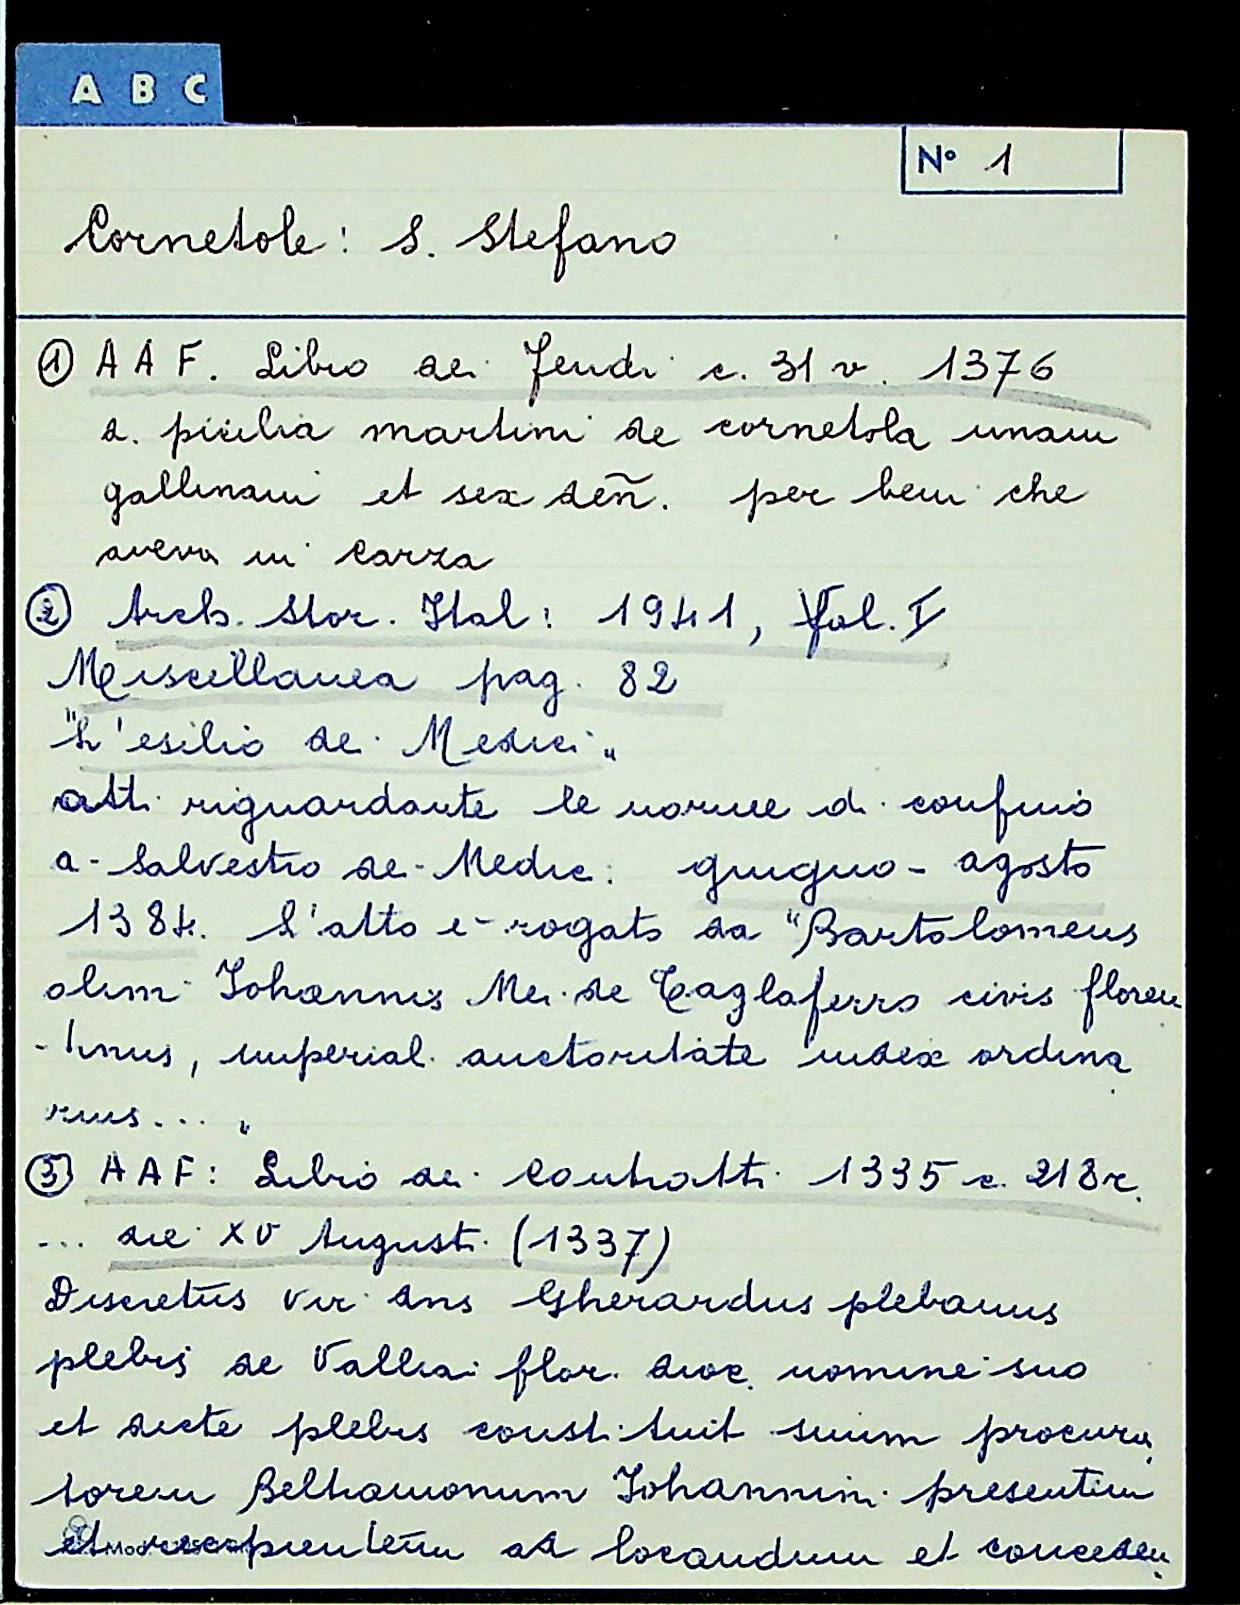 A B C
N° 1
Cornetole: S. Stefano
① AAF. Libro dei Feudi c. 31 v. 1376
d. piculia martini de cornetola unam
gallinam et sex deñ. per beni che
aveva in Carza
② Arch. Stor. Ital: 1941, Vol. I
Miscellanea pag. 82
"L'esilio dei Medici"
atti riguardante le norme di confino
a Salvestro de Medic: giugno - agosto
1384. L'atto è rogato da "Bartolomeus
olim Iohannis Mei de Taglaferro civis floren
-tinus, imperiali auctoritate iudex ordina
rius... "
③ AAF: Libro dei Contratti 1335 c. 218r.
... die XV Augusti (1337)
Discretus vir dns Gherardus plebanus
plebis de Vallia flor. dioc. nomine suo
et dicte plebis constituit suum procura
torem Beltramonum Iohannini presentem
et recipientem ad locandum et conceden